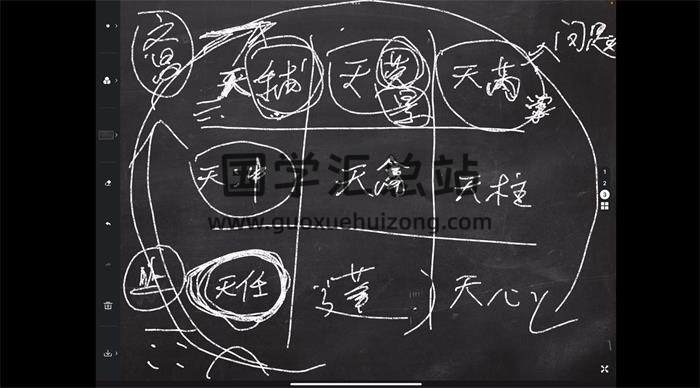 文昌
天辅 天英 天芮
景
天冲 天禽 天柱
国学汇总站
www.guoxuehuizong.com
天任 蓬 天心
1
2
3